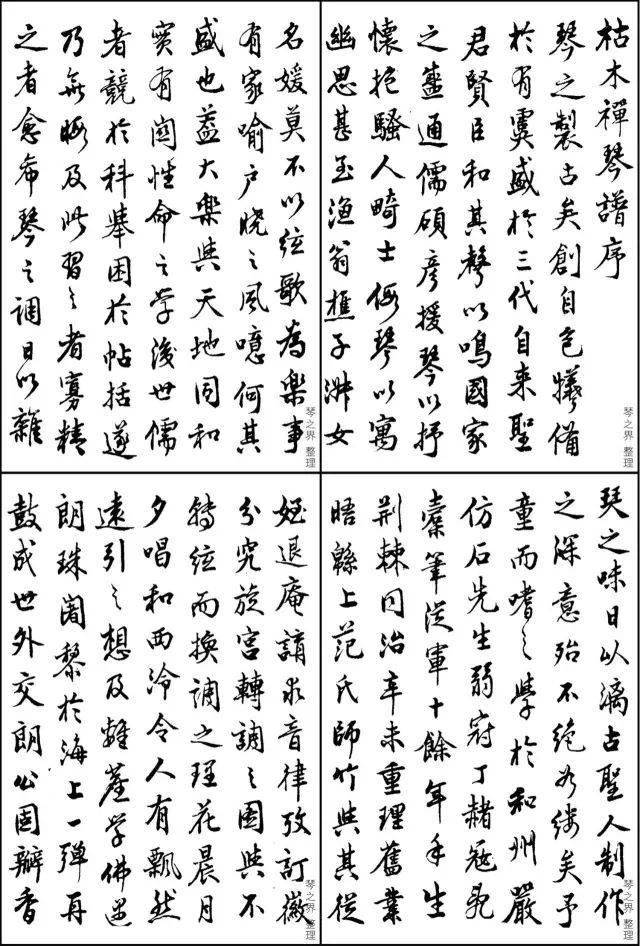 枯木禪琴譜序
琴之製古矣創自包犧備
於有虞盛於三代自來聖
君賢臣和其聲以鳴國家
之盛通儒碩彥援琴以抒
懷抱騷人畸士假琴以寓
幽思甚至漁翁樵子淑女
琴之界 整理
名媛莫不以弦歌為樂事
有家喻户曉之風噫何其
盛也蓋大樂與天地同和
實有關性命之學後世儒
者競於科舉困於帖括遂
乃無暇及此習之者寡精
之者愈希琴之調日以雜
琴之界 整理
琴之味日以漓古聖人制作
之深意殆不絕如縷矣予
童而嗜之學於和州嚴
仿石先生弱冠丁赭寇亂
橐筆從軍十餘年手生
荆棘同治辛未重理舊業
晤緜上范氏師竹與其從
琴之界 整理
姪退庵講求音律攷訂徽
分究旋宮轉調之圖與不
轉弦而換調之理花晨月
夕唱和西泠令人有飄然
遠引之想及學佛遇
朗珠闍黎於海上一彈再
鼓成世外交朗公固瓣香
琴之界 整理